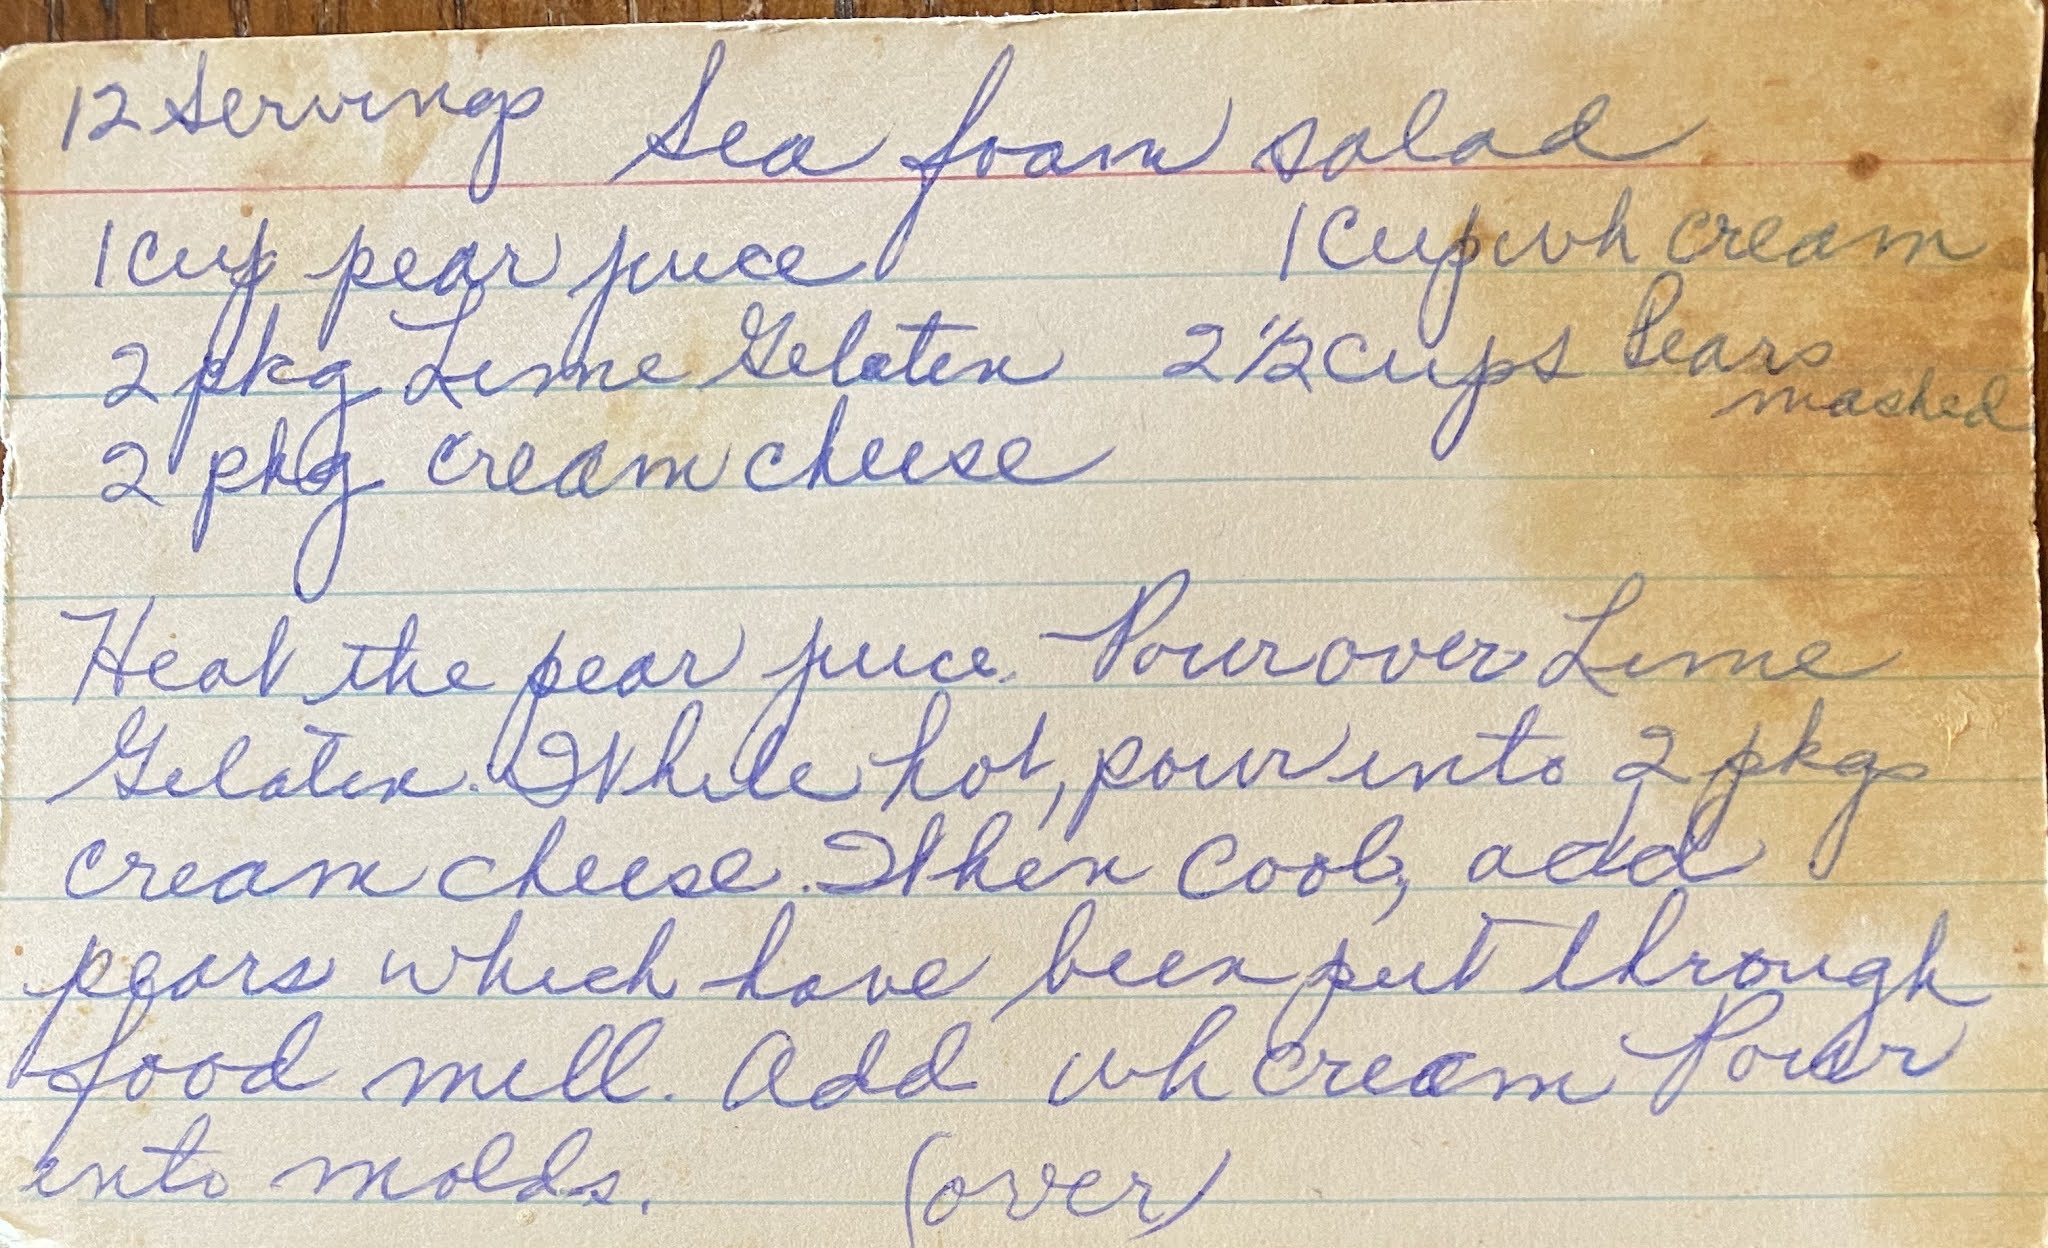 12 Servings Sea foam salad
1 cup pear juice 1 cup wh cream
2 pkg Lime Gelatin 2 1/2 cups Pears
mashed
2 pkg cream cheese
Heat the pear juice. Pour over Lime
Gelatin. While hot, pour into 2 pkgs
cream cheese. When cool, add
pears which have been put through
food mill. Add wh cream Pour
into molds. (over)